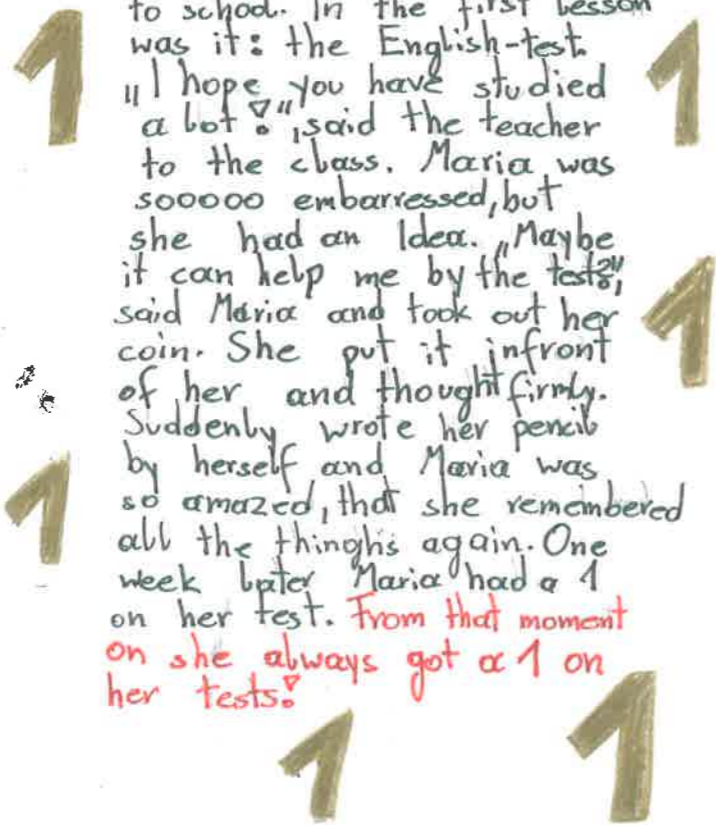 to school. In the first lesson
was it: the English-test.
„I hope you have studied
a lot!“, said the teacher
to the class. Maria was
sooooo embarressed, but
she had an Idea. „Maybe
it can help me by the test?“,
said Maria and took out her
coin. She put it infront
of her and thought firmly.
Suddenly wrote her pencil
by herself and Maria was
so amazed, that she remembered
all the thinghs again. One
week later Maria had a 1
on her test. From that moment
on she always got a 1 on
her tests!
1
1
1
1
1
1